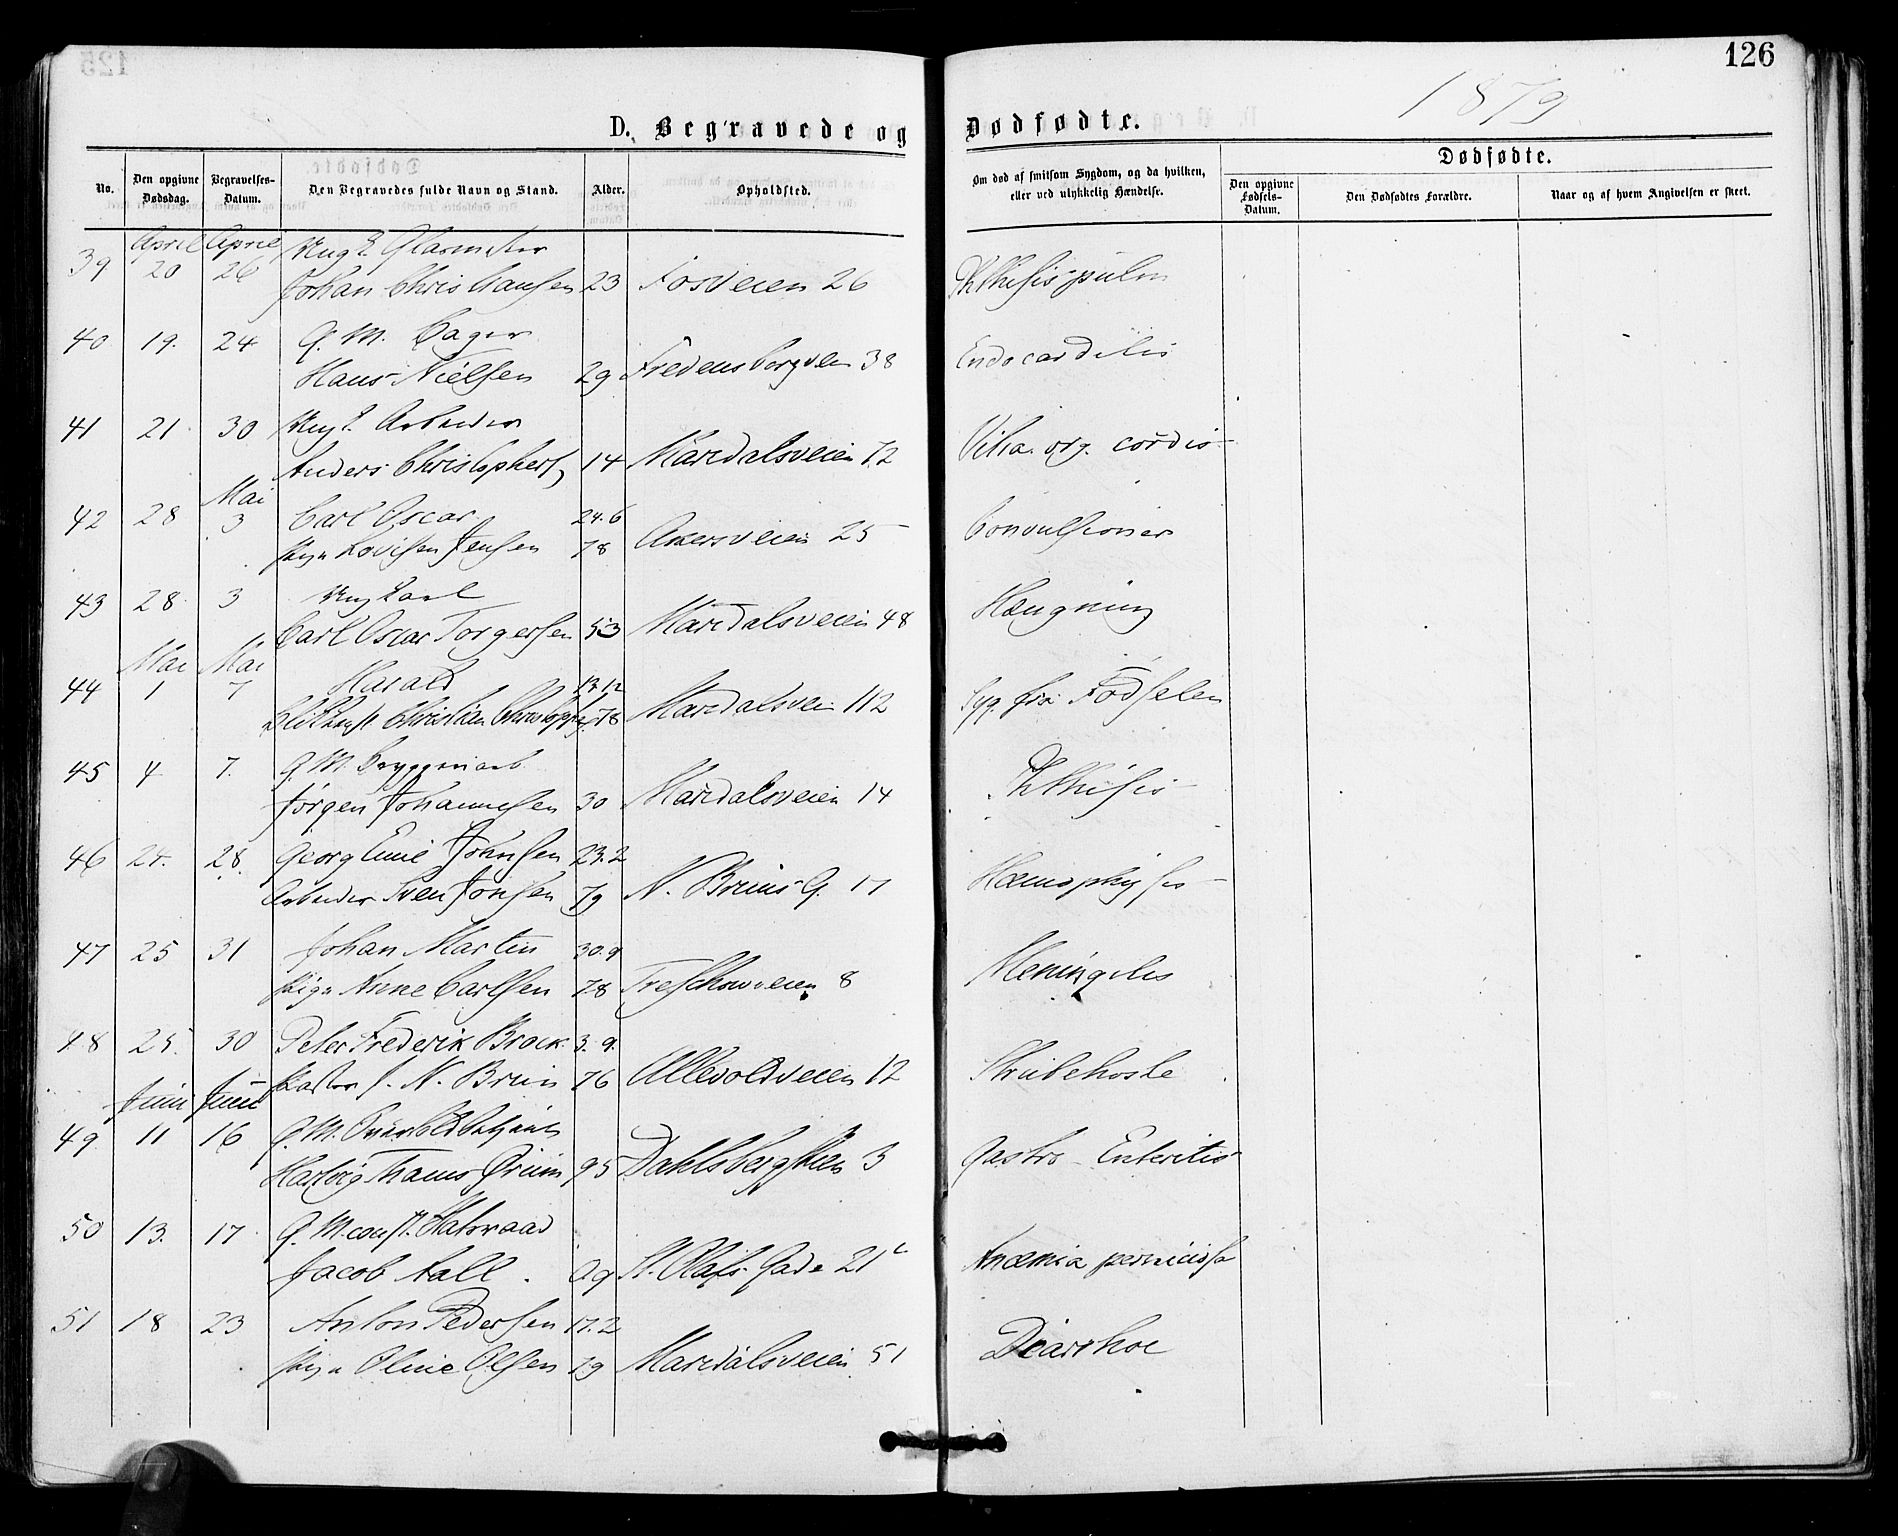 126
1879
D. Begravede og Dødfødte.
No.
Den opgivne Dødsdag.
Begravelses-Datum.
Den Begravedes fulde Navn og Stand.
Alder.
Opholdsted.
Om død af smitsom Sygdom, og da hvilken, eller ved ulykkelig Hændelse.
Dødfødte.
Den opgivne Fødsels-Datum.
Den Dødfødtes Forældre.
Naar og af hvem Angivelsen er skeet.
April April Ungk. Glasmester
39 20 26 Johan Christiansen 23 Fosveien 26 Phthisis pulm
40 19. 24 G. M. Bager
Hans Nielsen 29 Fredensborgveien 38 Endocarditis
41 21 30 Ungk. Arbeider
Anders Christophers 14 Maridalsveien 12 Vitia. org. cordis
Mai
42 28 3 Carl Oscar 24.6
Pige Lovise Jensen 78 Akersveien 25 Convulsioner
43 28 3 Ungkarl
Carl Oscar Torgersen 53 Maridalsveien 48 Hængning
Mai Mai
44 1 7 Harald 12
Christian 78 Maridalsvei 112 Syg fra Fødselen
45 4 7. G. M. Bryggeriarb.
Jørgen Johannesen 30 Maridalsveien 14 Phthisis
46 24. 28. Georg Emil Johnsen 23.2
Arbeider Sven Jonsen 79 N. Bruns G. 17
47 25 31 Johan Martin 30.9
Pige Anne Carlsen 78 Treschowveien 8 Meningitis
48 25. 30 Peter Frederik Brock 3.9.
Pastor J. N. Brun 76 Ullevoldveien 12 Strubehoste
Juni Juni
49 11 16 G. M.
Hartvig Thams 95 Dahlsbergstien 3 Gastro-Enteritis
50 13. 17 G. M. const. Statsraad
Jacob Aall. 09 St. Olafs Gade 21c Anæmia perniciosa
51 18 23 Anton Pedersen 17.2
Pige Oline Olsen 79 Maridalsveien 51 Diarrhoe